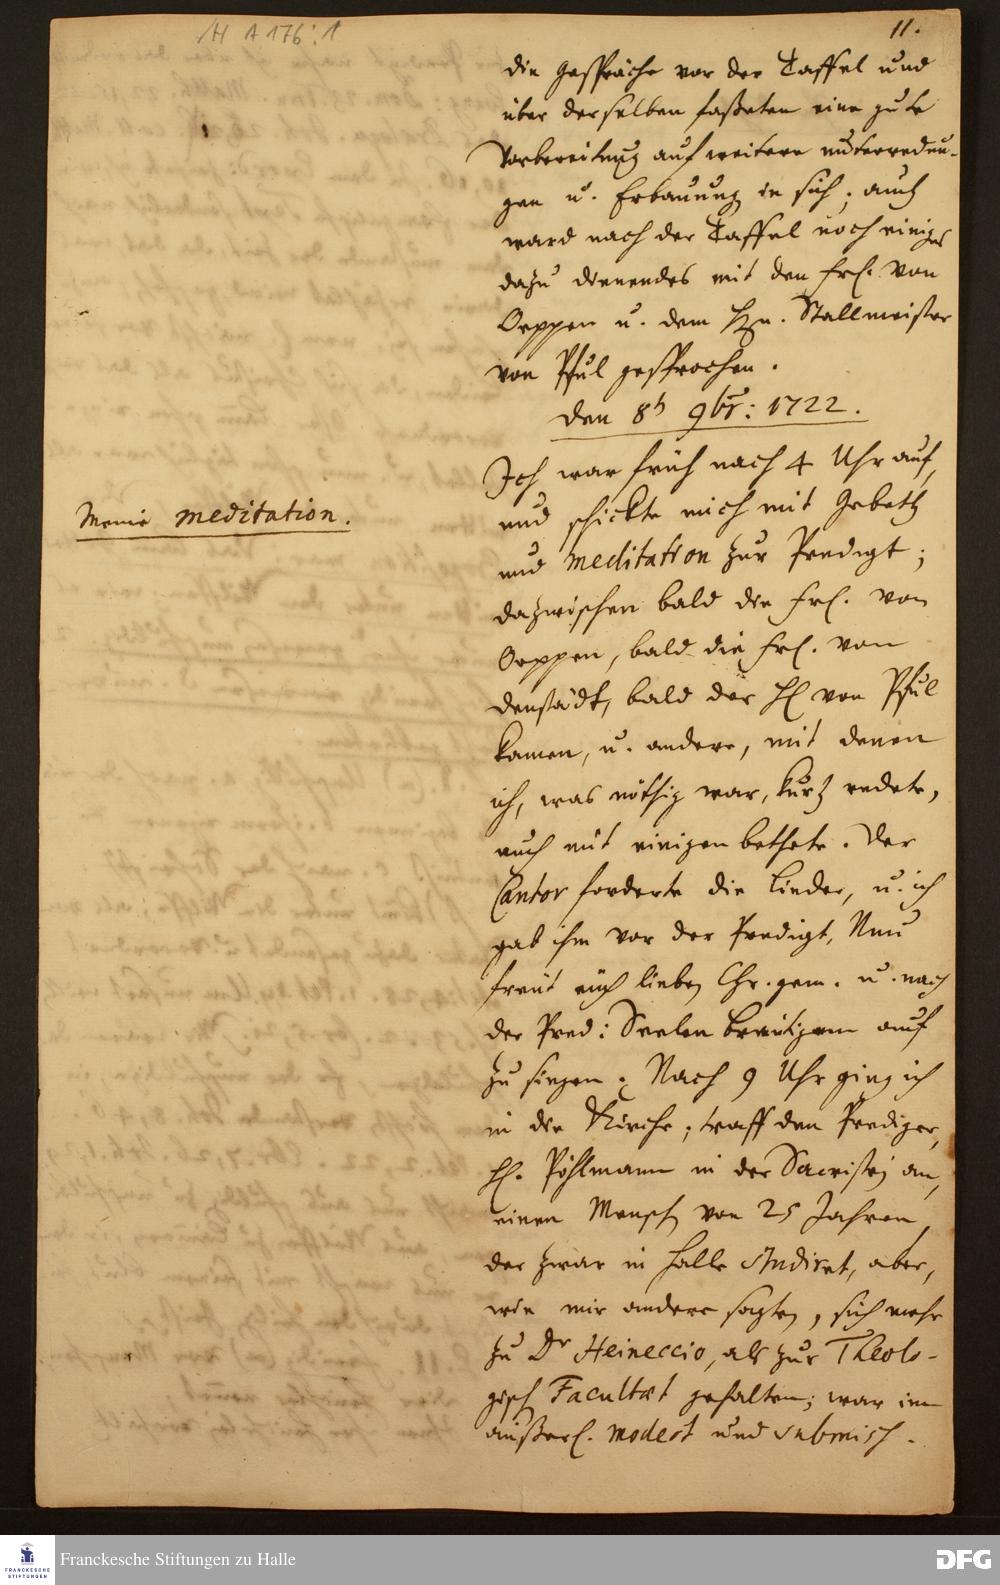 H A 176 : 1
11.
die Gespräche vor der Taffel und
über derselben faßeten eine gute
Vorbereitung auf weitere unterredun-
gen u. Erbauung in sich; auch
ward nach der Taffel noch einiges
dazu dienendes mit den Frl. von
Oeppen u. dem Hn. Stallmeister
von Pfuhl gesprochen.
den 8t 9br: 1722.
Ich war früh nach 4 Uhr auf,
und schickte mich mit Gebeth
Meine meditation.
und meditation zur Predigt;
dazwischen bald die Frl. von
Oeppen, bald die Frl. von
denstädt, bald der H. von Pfuhl
kamen, u. andere, mit denen
ich, was nöthig war, kurtz redete,
auch mit einigen bethete. Der
Cantor forderte die Lieder, u. ich
gab ihm vor der Predigt, Nun
freut euch lieben Chr. gem. u. nach
der Pred: Seelen Bräutigam auf
zu singen. Nach 9 Uhr ging ich
in die Kirche; traff den Prediger,
H. Pöhlmann in der Sacristey an,
einen Mensch von 25 Jahren,
der zwar in Halle studiret, aber,
wie mir andere sagten, sich mehr
zu Dr Heineccio, als zur Theolo-
gisch Facultæt gehalten; war im
äußerl. modest und submiss.
Franckesche Stiftungen zu Halle
FRANCKESCHE
STIFTUNGEN
DFG